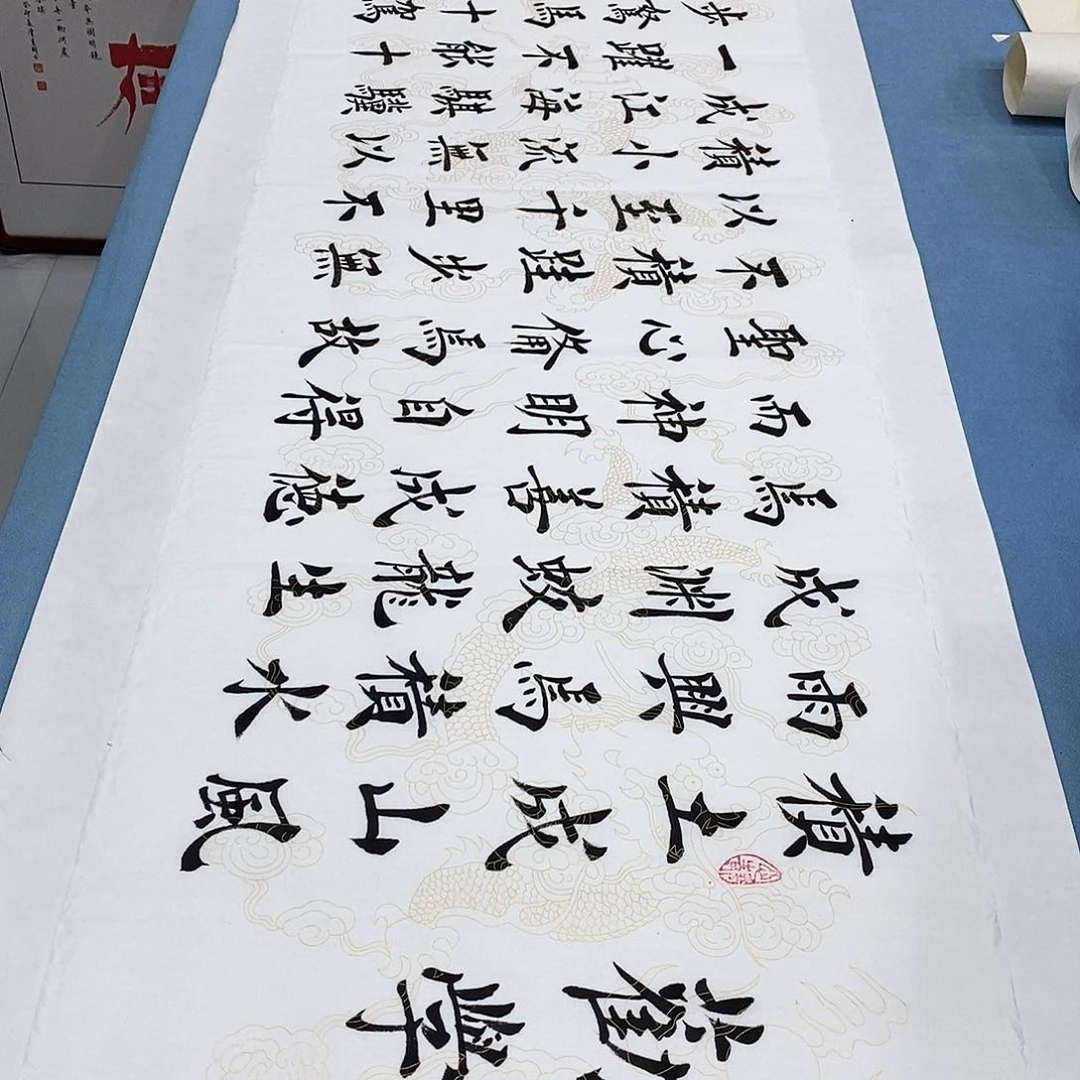 勸學
積土成山風
雨興焉積水
成淵蛟龍生
焉積善成德
而神明自得
聖心備焉故
不積跬步無
以至千里不
積小流無以
成江海騏驥
一躍不能十
步駑馬十駕